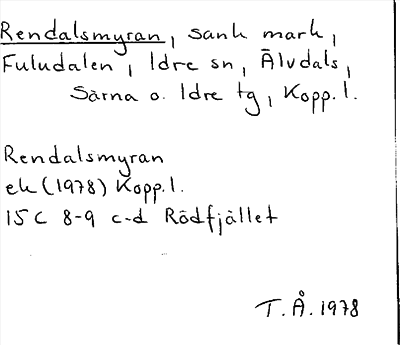 Rendalsmyran, sank mark,
Fuludalen, Idre sn, Älvdals,
Särna o. Idre tg, Kopp.l.
Rendalsmyran
ek (1978) Kopp.l.
15 C 8-9 c-d Rödfjället
T.Å. 1978